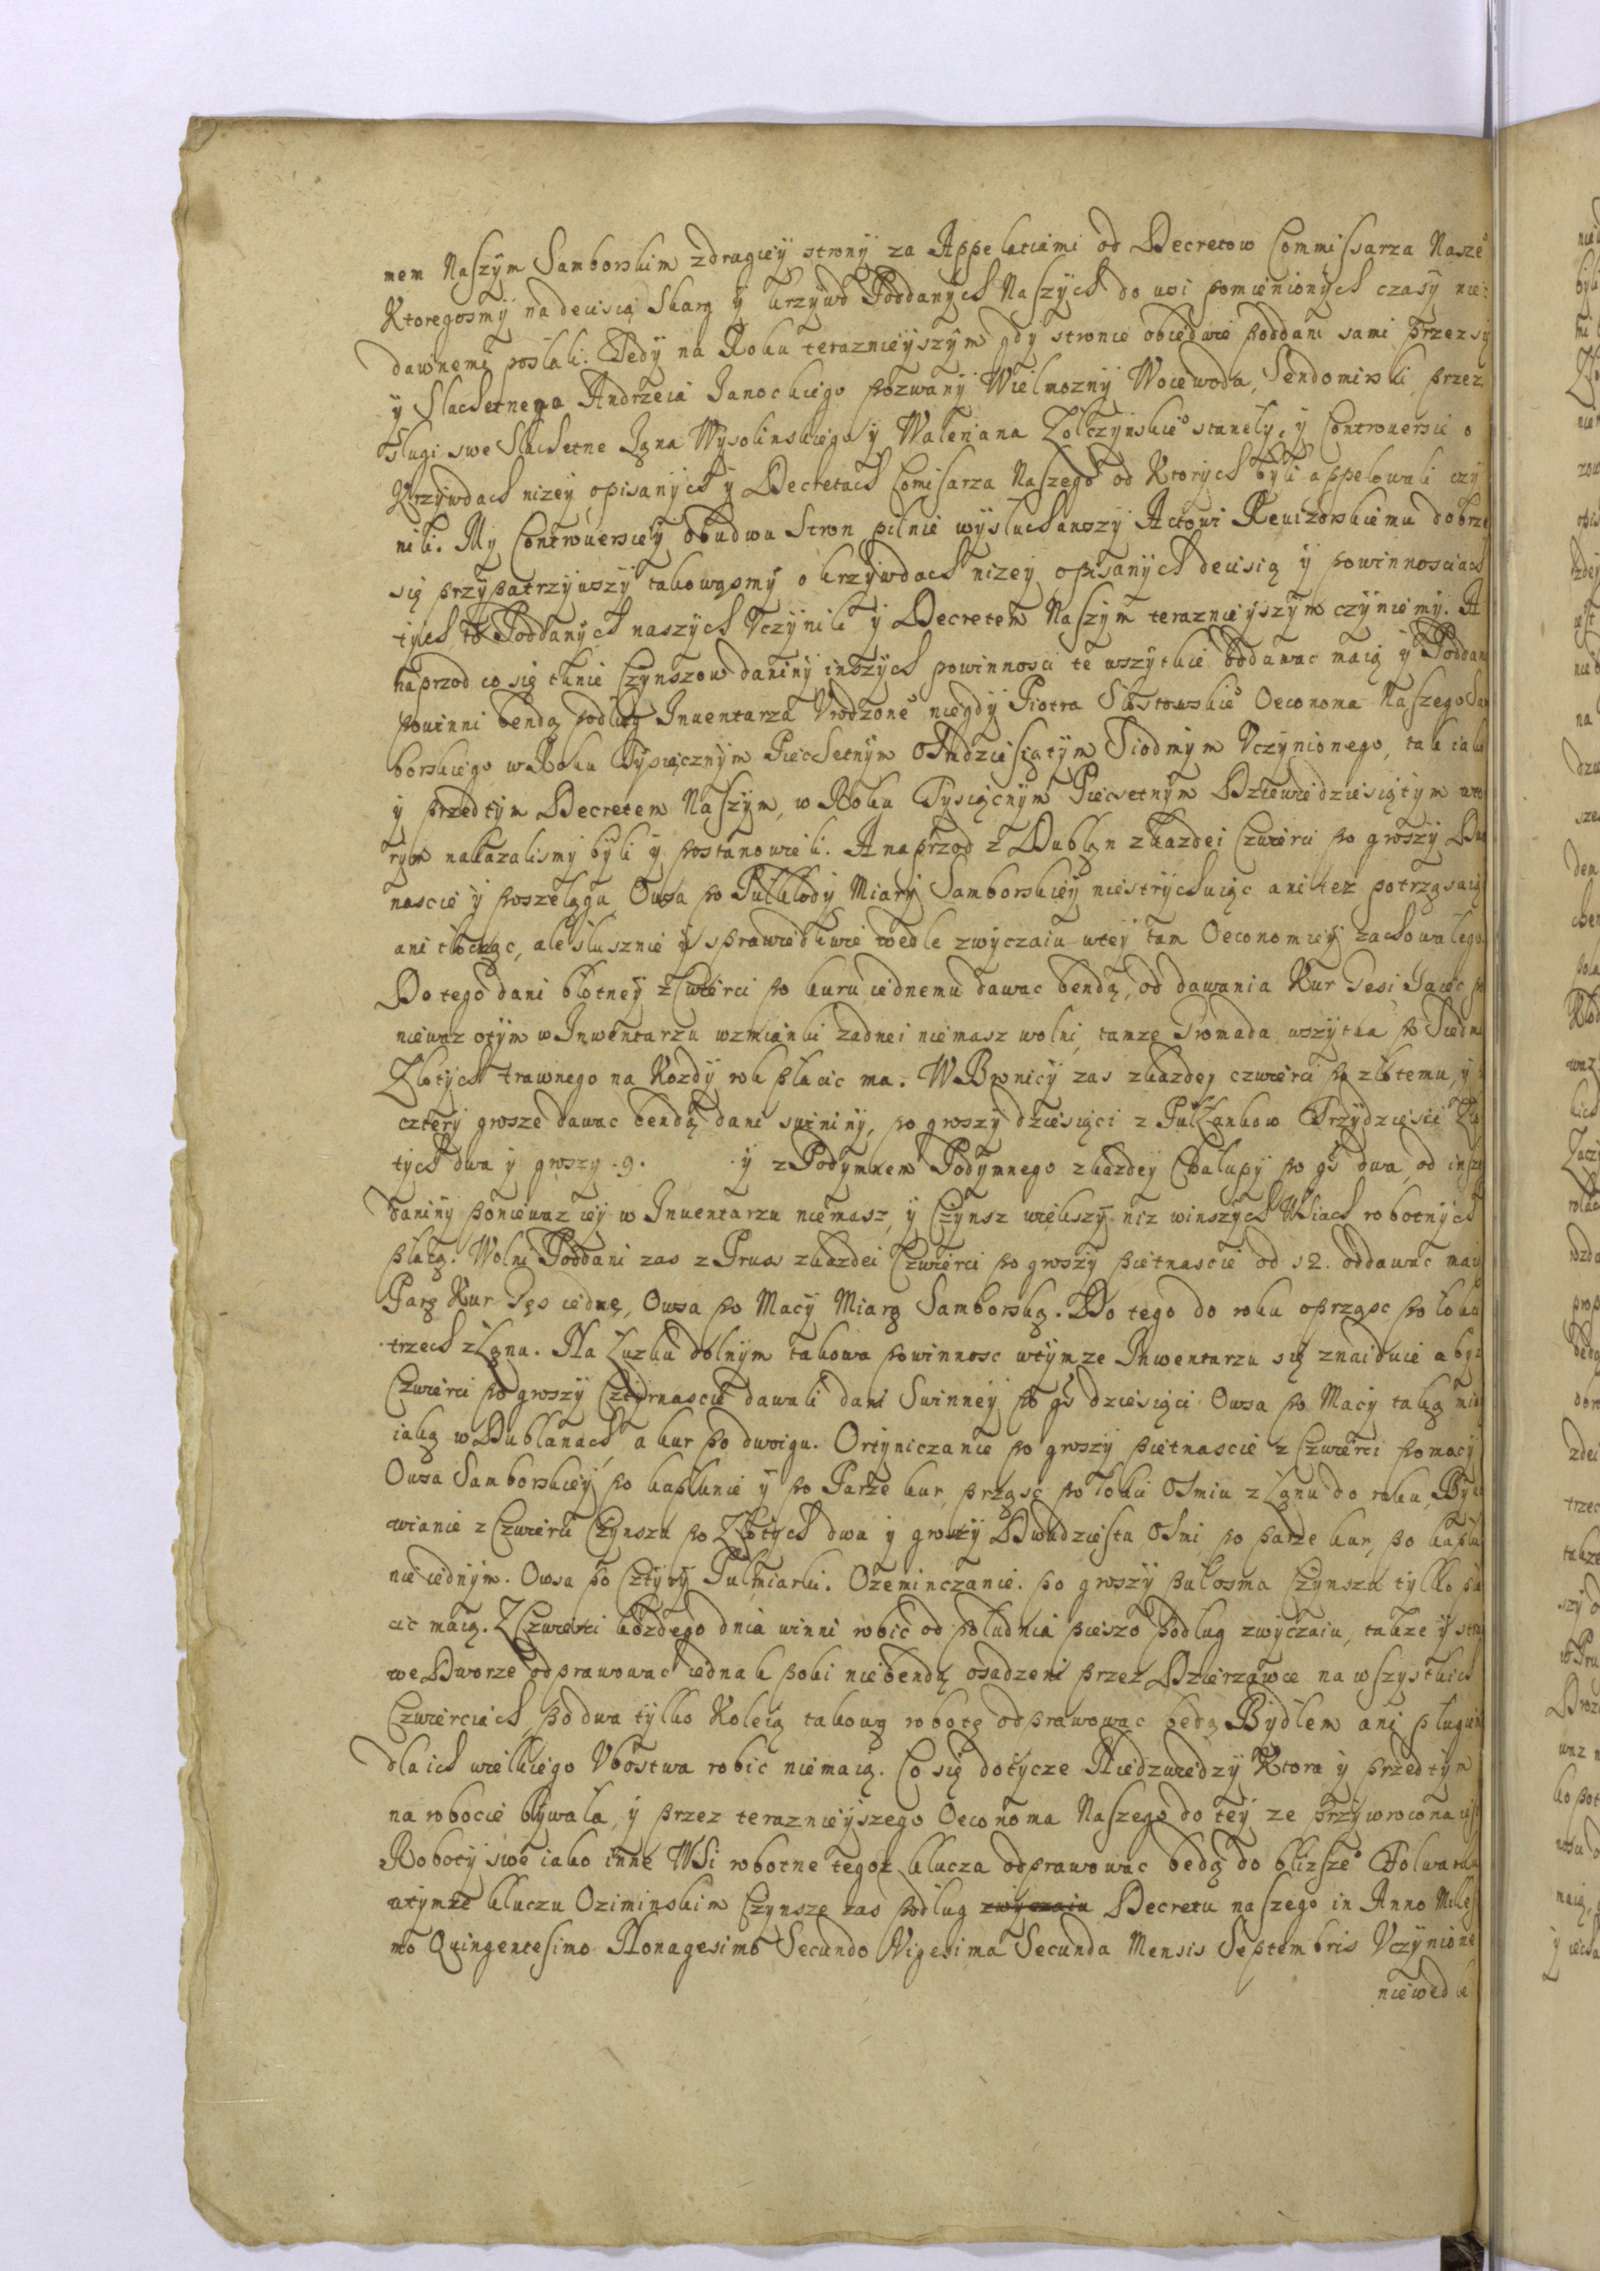 mem Naszÿm Samborskim z drugieÿ stronÿ za Appelatiami od Decretow Commissarza Nasze°
Ktoregosmÿ na decisią Skarg ÿ krzÿwd Poddanÿch Naszÿch do wsi pomienionÿch czasÿ nie:
dawnemi posłali. Tedÿ na Roku teraznieÿszÿm gdÿ stronie obiedwie poddani sami przez się
ÿ Slachetnego Andrzeia Janockiego pozwanÿ Wielmoznÿ Woiewoda Sendomirski przez
Slugi swe Slachetne Jana Wÿsolinskiego ÿ Waleriana Zolczÿnskie° stanelÿ, ÿ Controuersie o
Krzÿwdach nizeÿ opisanÿch ÿ Decretach Comisarza Naszego od Ktorÿch bÿli appelowali czÿ
nili. Mÿ Controuersieÿ obudwu Stron pilnie wÿsluchawszÿ Actowi Reuizorskiemu dobrze
się przÿpatrzÿwszÿ takowąsmÿ o krzÿwdach nizeÿ opisanÿch decisią ÿ powinnosciach
tÿch Poddanÿch naszÿch Vczÿnili ÿ Decretem Naszÿm teraznieÿszÿm czÿniemÿ. A
naprzod co się tknie Czÿnszow daninÿ inszÿch powinnosci te wszÿtkie oddawac maią ÿ Poddani
powinni bendą podług Inuentarza Vrodzone° niegdÿ Piotra Oeconoma Naszego Sam
borskiego w Roku Tÿsiącznÿm Piecsetnÿm Osmdziesiątÿm Siodmÿm Vczÿnionego, tak iako
ÿ przedtÿm Decretem Naszÿm, w Roku Tÿsiącnÿm Piecsetnÿm Dziewiedziesiątÿm wto
rÿm nakazalismÿ bÿli ÿ postanowieli. A naprzod z Dublan z kazdei Czwierci po groszÿ Dwa
nascie ÿ poszelągu Owsa po Pułkłodÿ Miarÿ Samborskieÿ niestrÿchuiąc ani tez potrząsaiąc
ani tłocząc, ale slusznie ÿ sprawiedliwie wedle zwÿczaiu wteÿ tam Oeconomieÿ zachowałego.
Do tego dani błotneÿ z Czwierci po kuru iednemu dawac bendą, od dawania Kur Gesi Jaiec po
niewaz otÿm w Inwentarzu wzmianki zadnei niemasz wolni, tamze Gromada wszÿtka po Siedm
Złotÿch trawnego na Kozdÿ rok płacic ma. W Bronicÿ zas z kazdeÿ czwierci po złotemu, ÿ
czterÿ grosze dawac bendą dani swininÿ, po groszÿ dziesiąci z Pułłankow Trzÿdziesci Zło
tÿch dwa ÿ groszÿ .9. ÿ z Podÿmnem Podÿmnego z kazdeÿ Chalupÿ po gs dwa, od inszeÿ
daninÿ poniewaz ieÿ w Inuentarzu niemasz, ÿ Czÿnsz wiekszÿ niz winszÿch Wsiach robotnÿch
płatą. Wolni Poddani zas z Prus z kazdei Czwierci po groszÿ pietnascie od 12. oddawac maią
Parę Kur Gęs iednę, Owsa po Macÿ Miarą Samborską. Do tego do roku oprząsc po łokci
trzech z Łanu. Na Łuzku dolnÿm takowa powinnosc wtÿmze Inwentarzu się znaiduie abÿ z
Czwierci po groszÿ Cztÿrnascie dawali dani Swinneÿ po gs dziesiąci Owsa po Macÿ taką mia
iaką w Dublanach, a kur po dwoigu. Ortÿniczanie po groszÿ pietnascie z Czwierci po macÿ
Owsa Samborskieÿ, po kapłunie ÿ po Parze kur, prząsc po łokci Osmiu z Łanu do roku, Bÿko
wianie z Czwierci Czÿnszu po Złotÿch dwa ÿ groszÿ Dwudziestu Osmi po parze kur, po kapłu
nie iednÿm. Owsa po Cztÿrÿ Pułmiarki. Ozeminczanie. po groszÿ pułosma Czÿnszu tÿlko pła
cic maią. Z Czwierci kozdego dnia winni robic od południa pieszo podlug zwÿczaiu, takze ÿ stro
we Dworze odprawowac iednak poki niebendą osadzeni przez Dzierzawce na wszÿstkich
Czwierciach, po dwa tÿlko Koleią takową robotę odprawowac będą Bÿdłem ani plugiem
dla ich wielkiego Vbostwa robic niemaią. Co się dotÿcze Niedzwiedzÿ Ktora ÿ przedtÿm
na robocie bÿwała, ÿ przez teraznieÿszego Oeconoma Naszego do teÿ ze przÿwrocona iest
Robotÿ swe iako inne Wsi robotne tegoz klucza odprawowac będą do blizsze° Folwarku
wtÿmze kluczu Oziminskim Czÿnsze zas podlug zwÿczaiu Decretu naszego in Anno Millesi
mo Quingentesimo Nonagesimo Secundo Vigesima Secunda Mensis Septembris Vczÿnione
niewedle